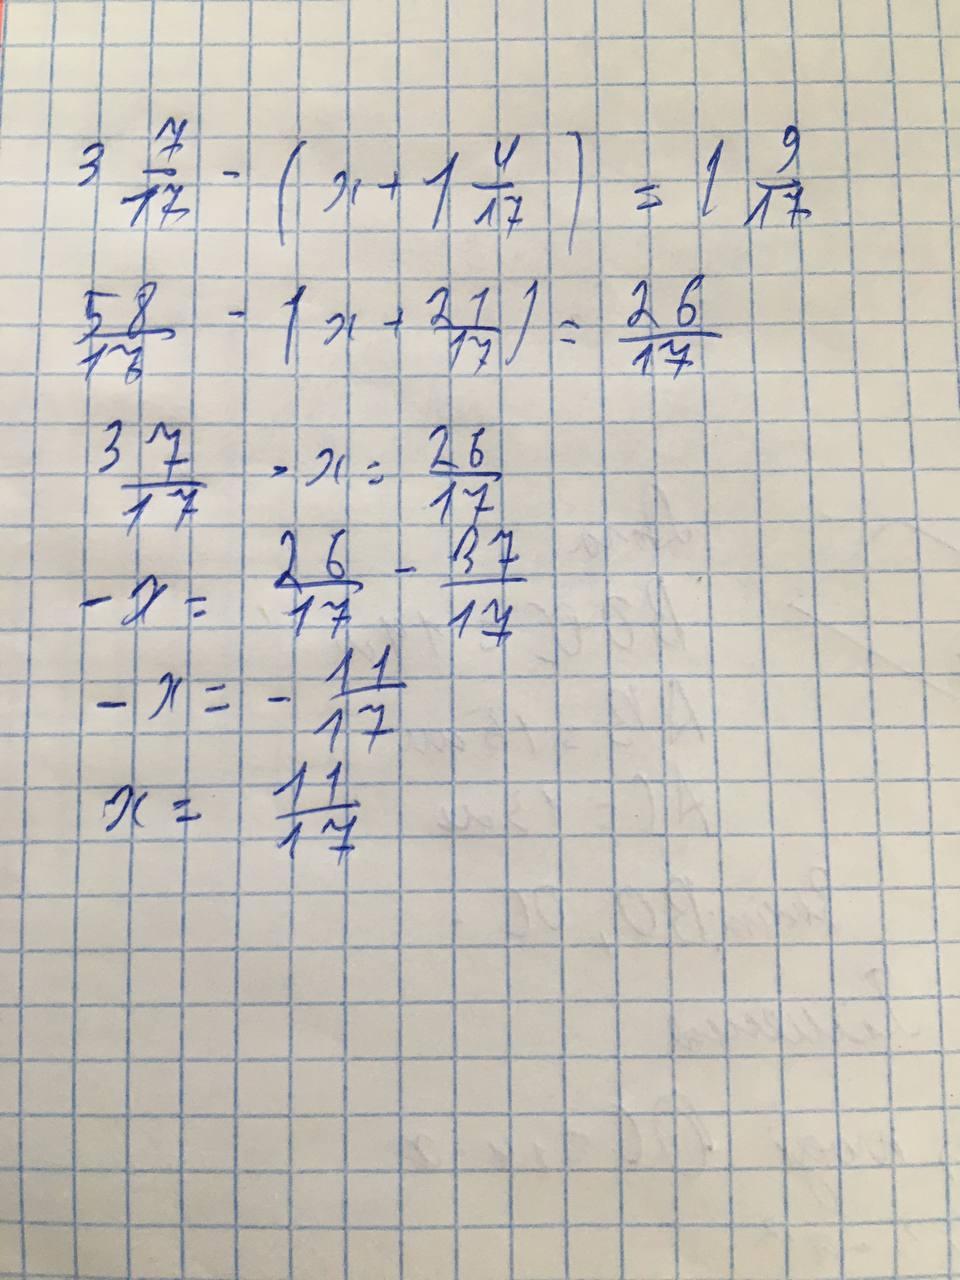 3 7/17 - (x + 1 4/17) = 1 9/17
58/17 - (x + 21/17) = 26/17
37/17 - x = 26/17
- x = 26/17 - 37/17
- x = - 11/17
x = 11/17